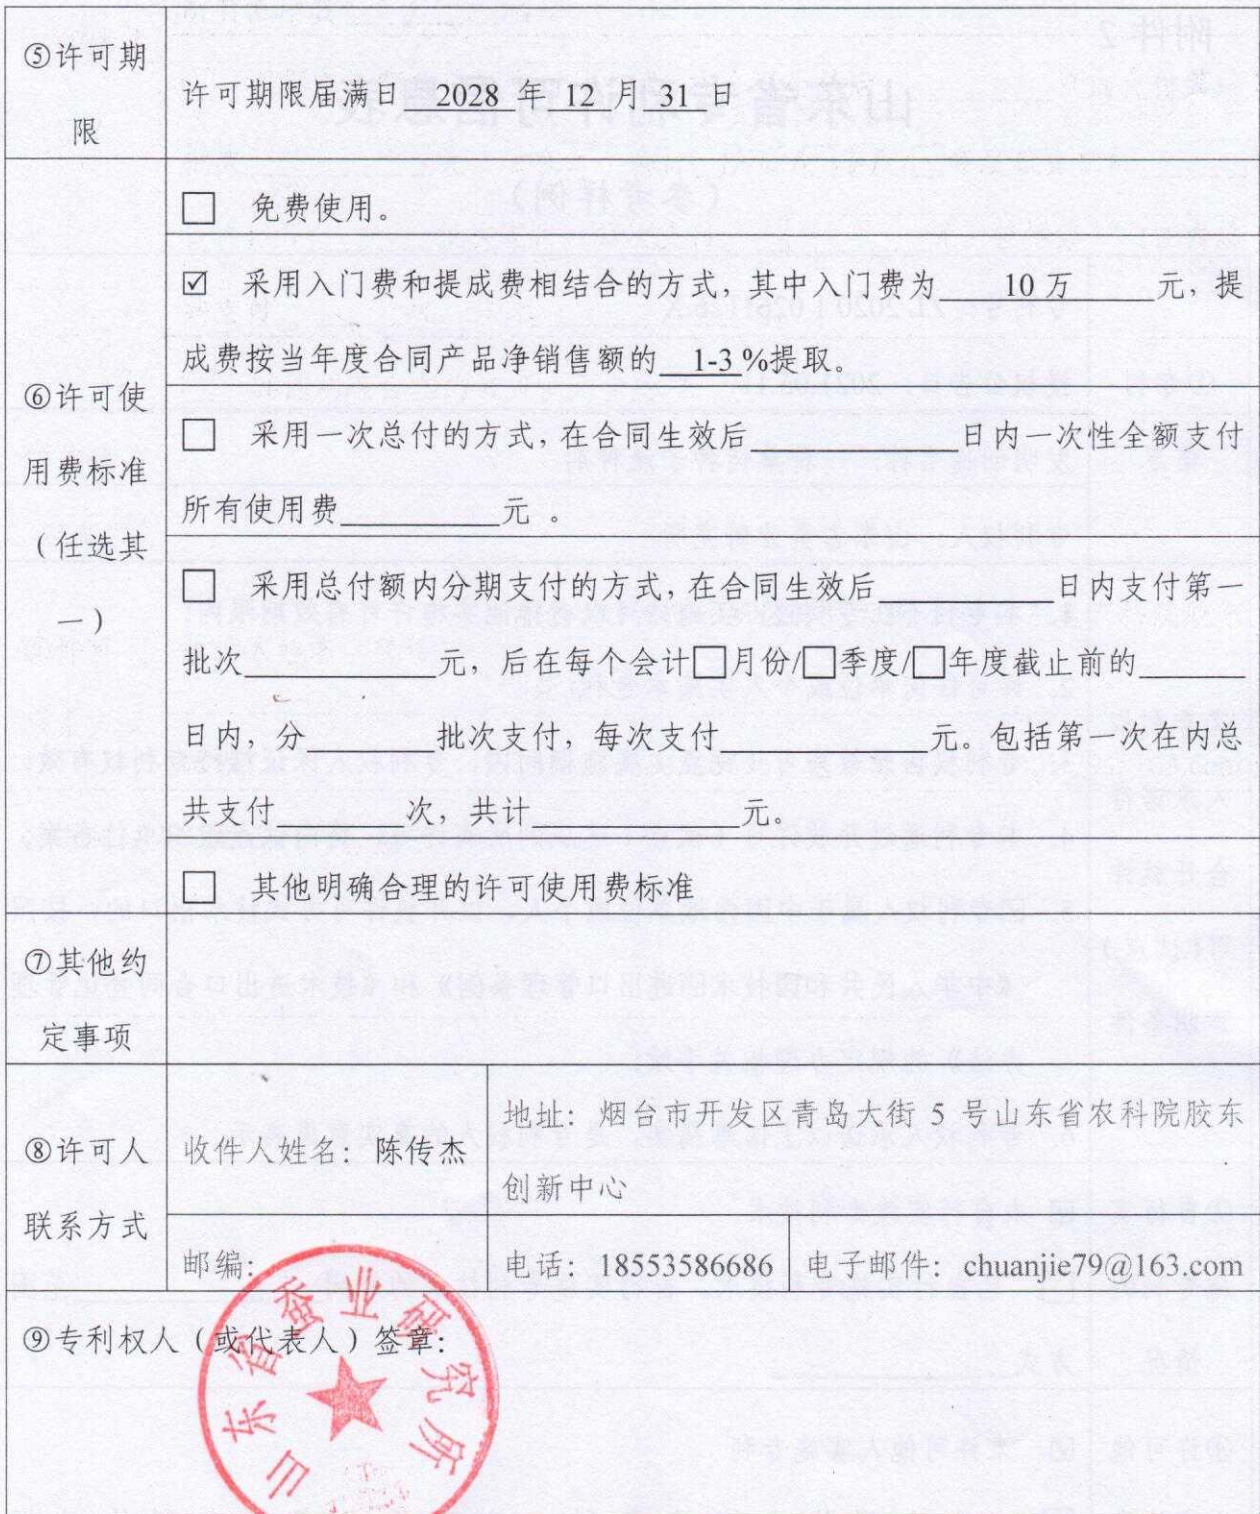 ⑤许可期
限
许可期限届满日 2028 年 12 月 31 日
⑥许可使
用费标准
（任选其
一）
□ 免费使用。
☑ 采用入门费和提成费相结合的方式，其中入门费为 10 万 元，提
成费按当年度合同产品净销售额的 1-3 %提取。
□ 采用一次总付的方式，在合同生效后________日内一次性全额支付
所有使用费________元 。
□ 采用总付额内分期支付的方式，在合同生效后________日内支付第一
批次________元，后在每个会计□月份/□季度/□年度截止前的________
日内，分________批次支付，每次支付________元。包括第一次在内总
共支付________次，共计________元。
□ 其他明确合理的许可使用费标准
⑦其他约
定事项
⑧许可人
联系方式
收件人姓名：陈传杰
地址：烟台市开发区青岛大街 5 号山东省农科院胶东
创新中心
邮编：
电话：18553586686
电子邮件：chuanjie79@163.com
⑨专利权人（或代表人）签章：
山东省蚕业研究所